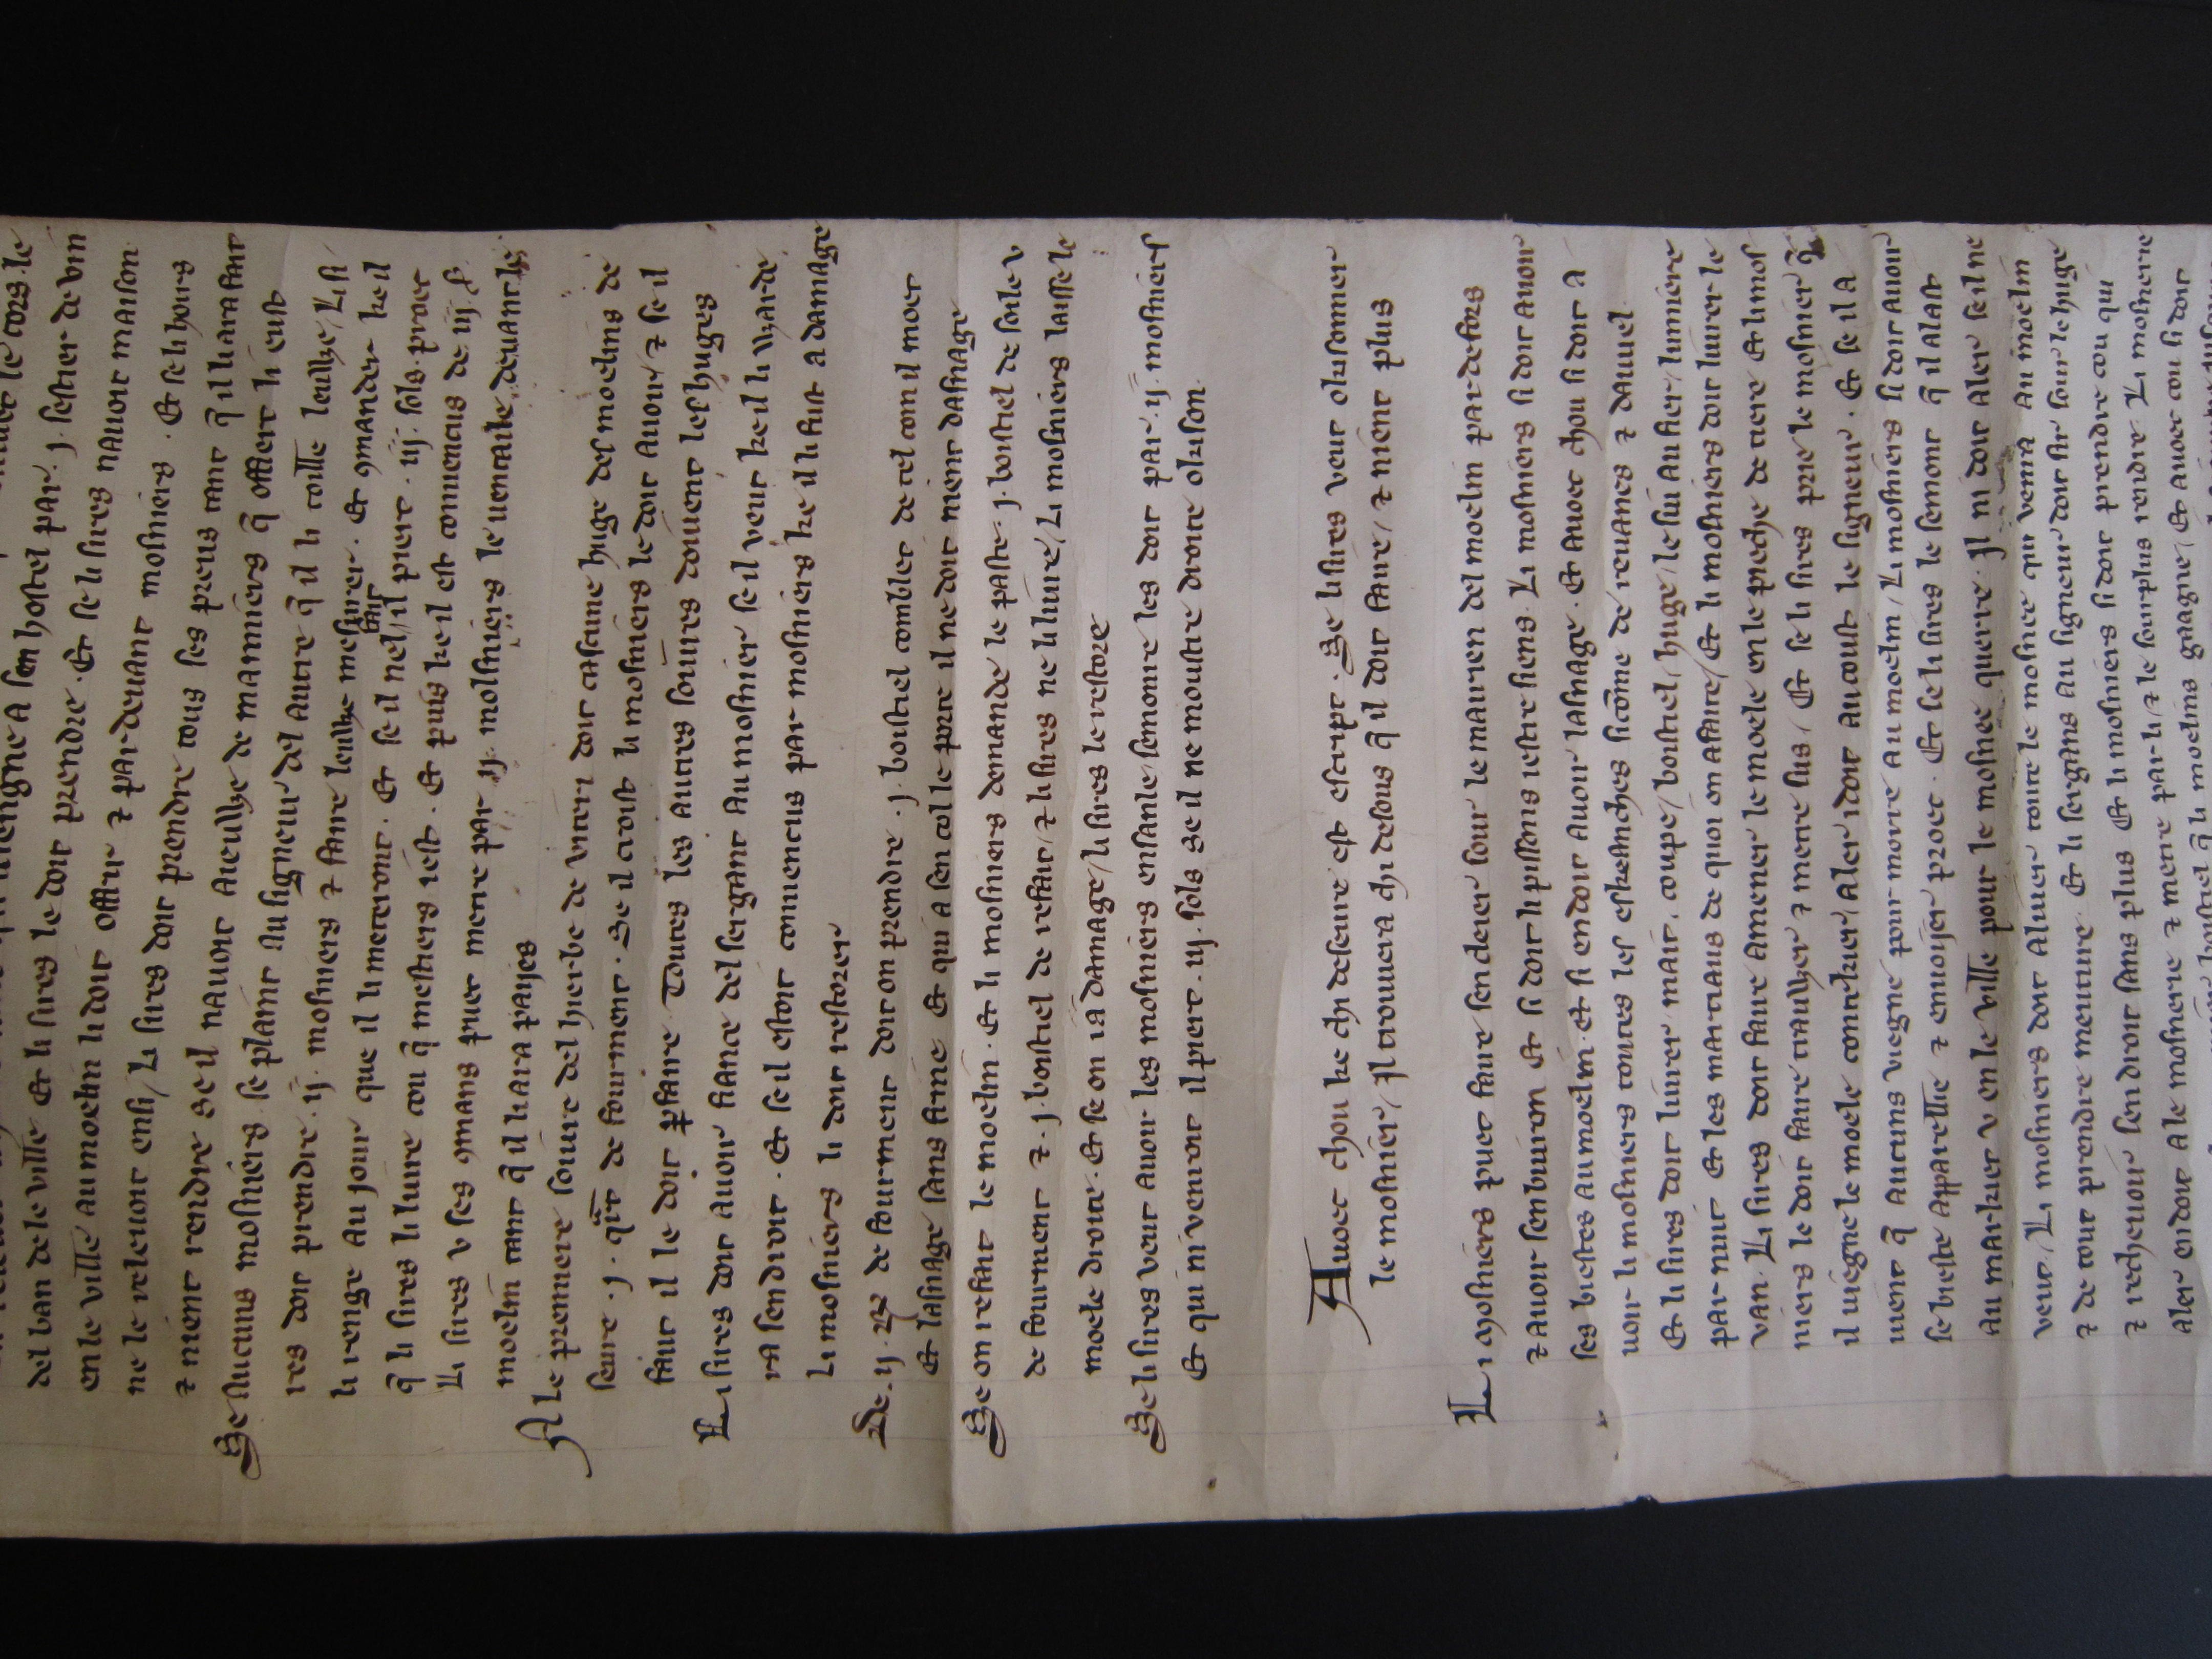 del ban de le ville Et li sires le doit prendre . Et se li sires nauoit maison
en le ville au moelin li doit offrir ⁊ par deuant mosniers . Et se li hoirs
ne le releuoit ensi / Li sires doit prendre tous ses preus tant q̄ il li ara fait
⁊ nient rendre Se il nauoit aieulhe de manniers q̄ offrent li eust
Se aucuns mosniers se plaint au signeur del autre q̄ il li toille leulhe / Li si
res doit prendre . ij . mosniers ⁊ faire leulhe mesurer . Et ꝯmander ke il
li renge au jour que il li meteront . Et se il nel fait il piert . iij . sols . proec
q̄ li sires li liure cou q̄ mestiers iest . Et puis ke il est conuencus de iij s̄
Li sires v ses ꝯmans puet metre par ij . molsniers le uentaile deuant le
moelin tant q̄ il li ara paijes
A le premiere soiure del hierbe de viteri doit cascune huge des moelins de
seure . j . q̄rt de fourment . Se il croist li mosniers le doit auoir / ⁊ se il
faut il le doit ꝑfaire Toutes les autres soiures doiuent les huges
Li sires doit auoir fiance del sergant au mosnier se il veut ke il li warde
ra sen droit . Et se il estoit conuencus par mosniers ke il li fust a damage
Li mosniers li doit restorer
De . ij . de fourment doit on prendre . j . boistiel comblet de tel com il moet
Et lasnage sans fime Et qui a sen col le porte il ne doit nient dasnage
Se on refait le moelin . Et li mosniers demande le paste . j . boistiel de soile v
de fourment ⁊ . j . boistiel de refait / ⁊ li sires ne li liure / Li mosniers laisse le
moele droite . Et se on ia damage / li sires le restore
Se li sires veut auoir les mosniers ensanle / semonre les doit par . ij . mosniers
Et qui ni venroit il piert . iij . sols Se il ne moustre droite okison
Auoec chou ke chi deseure est escript . Se li sires veut okisonner
le mosnier / Il trouuera chi desous q̄ il doit faire / ⁊ nient plus
Li mosniers puet faire sen deier sour le mairien del moelin par defors
⁊ auoir sen buiron Et si doit li pissons iestre siens . Li mosniers si doit auoir
ses biestes au moelin . et si en doit auoir lasnage . Et auoec chou si doit a
uoir li mosniers toutes les eskesinches sicōme de reuanes ⁊ dauuel
Et li sires doit liurer mait, coupe / boistiel / huge / le sui au fier / lumiere
par nuit Et les martiaus de quoi on afaite / Et li mosniers doit liurer le
van . Li sires doit faire amener le moele en le pieche de tiere Et li mos
niers le doit faire traulher ⁊ metre sus / Et se li sires prie le mosnier q̄
il uiegne le moele contekier / Aler i doit au coust le signeur . Et se il a
uient q̄ aucuns viegne pour morre au moelin / Li mosniers si doit auoir
se bieste apparellie ⁊ enuoijer proec . Et se li sires le semont q̄ il alast
au markiet v en le ville pour le mosnee querre . Il ni doit aler se il ne
veut / Li mosniers doit aluier toute le mosnee qui venra au moelin
⁊ de tout prendre menture . Et li sergans au signeur doit sir sour le huge
⁊ recheuoir sen droit sans plus Et li mosniers si doit prendre cou qui
aler en doit a le mosnerie ⁊ metre par li / ⁊ le sourplus rendre . Li mosnerie